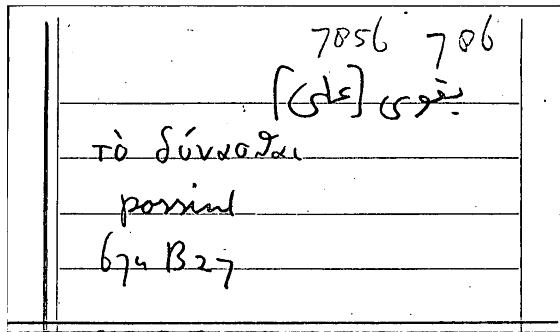 7056 706
يقوى [على]
τὸ δύνασθαι
possint
674 B27